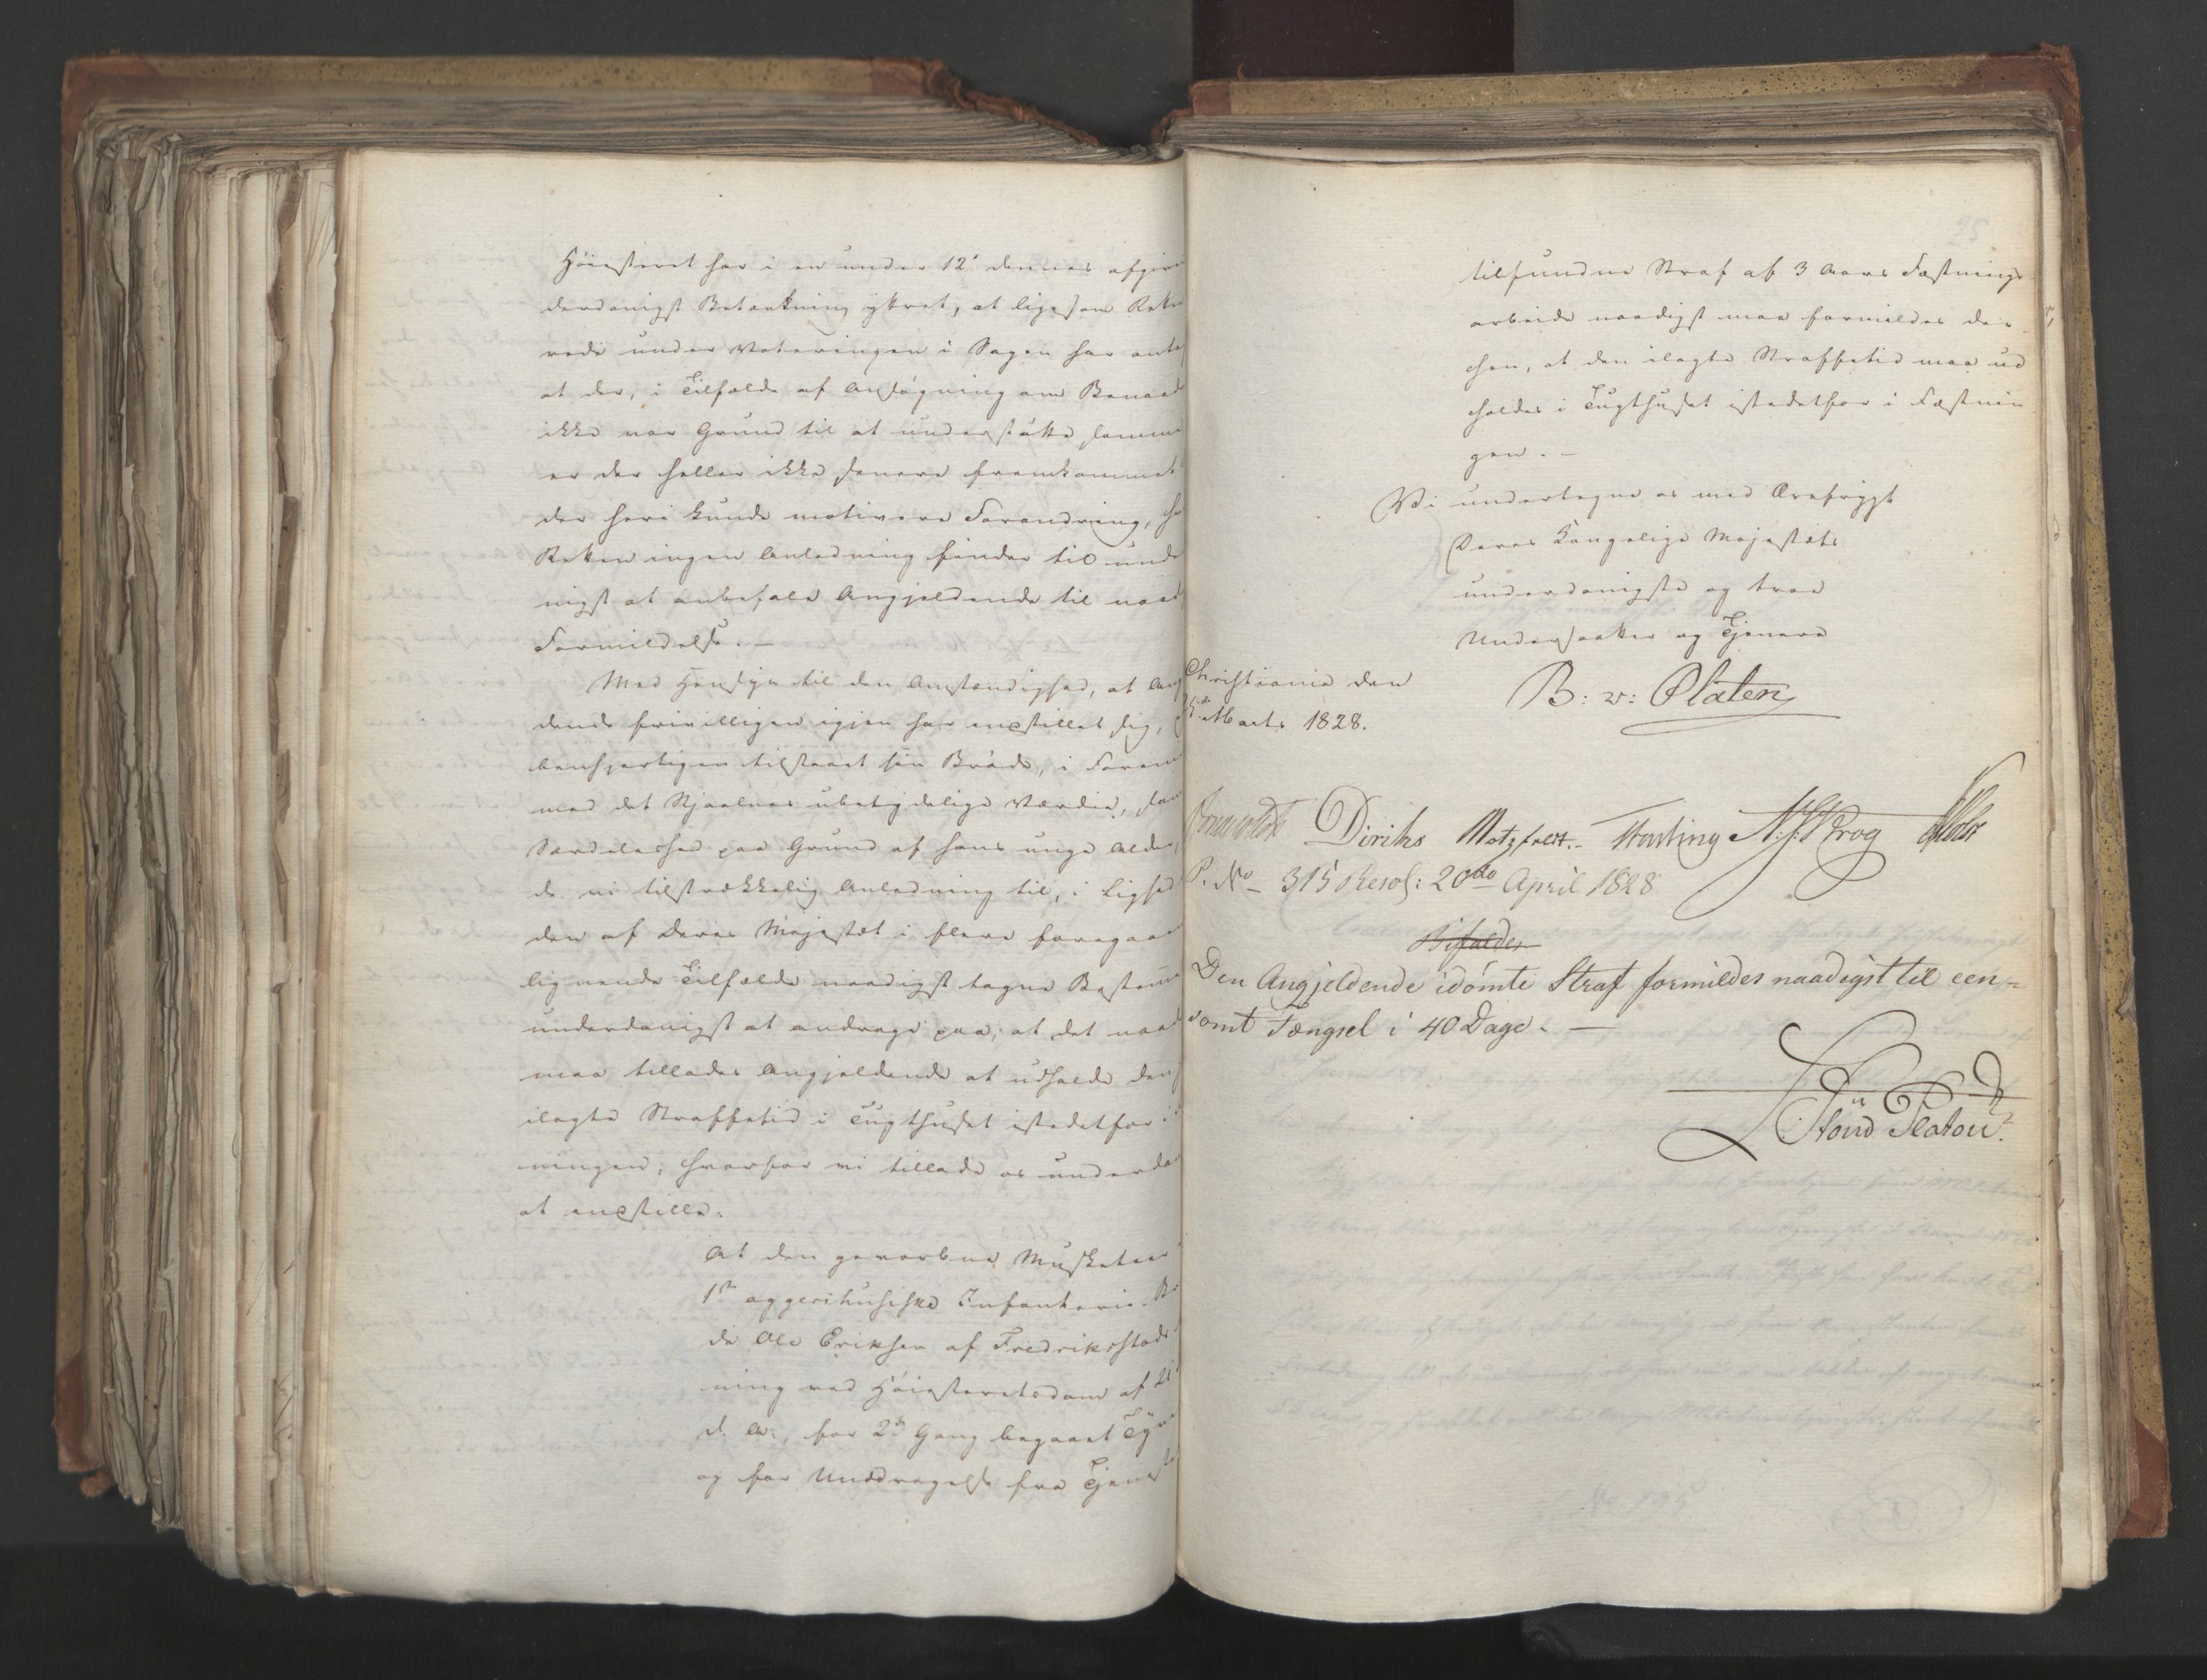 Höiesteret har i en under 12te dennes afgiven
derdanigst Betænkning yttret, at ligesom Retten
rede under Voteringen i Sagen har anta
at der, i Tilfælde af Ansøgning om Benaad
ikke var Grund til at understøtte samme
er der heller ikke senere fremkommet
der heri kunde motivere Forandring, hv
Retten ingen Anledning finder til unde
nigst at anbefale Angjeldende til naad
Formildelse. –
Med Hensyn til den Omstændighed, at Ang
dende frivilligen igjen har indstillet sig,
benhjertigen tilstaaet sin Brøde, i Foren
med det Stjaalnes ubetydelige Værdie, sam
Særdeleshed paa Grund af hans unge Alder,
de vi tilstrækkelig Anledning til, i Lighed
den af Deres Majestæt i flere foregaae
lignende Tilfælde naadigst tagne Bestemm
underdanigst at andrage paa, at det naad
maa tillades Angjeldende at udholde den
ilagte Straffetid i Tugthuset istedetfor i
ningen; hvorfor vi tillade os underda
at indstille:
At den gevorbne Musketeer
1ste aggershusiske Infanterie-Br
de Ole Eriksen af Fredriksstads
ning ved Höiesteretsdom af 21
d. A., for 2den Gang begaaet Tyv
og for Unddragelse fra Tjenest
25
tilfundne Straf af 3 Aars Fæstnings
arbeide naadigst maa formildes der-
hen, at den ilagte Straffetid maa ud
holdes i Tugthuset istedetfor i Fæstnin
gen. –
Vi undertegne os med Ærefrygt
Deres Kongelige Majestæts
underdanigste og troe
Undersaatter og Tjenere
Christiania den
Marts 1828.
B: v: Platen
Diriks Motzfeldt. N: J: Krog
P. No 315 Resol: 20de April 1828
Bifaldes
Den Angjeldende idömte Straf formildes naadigst til een=
somt Fængsel i 40 Dage. –